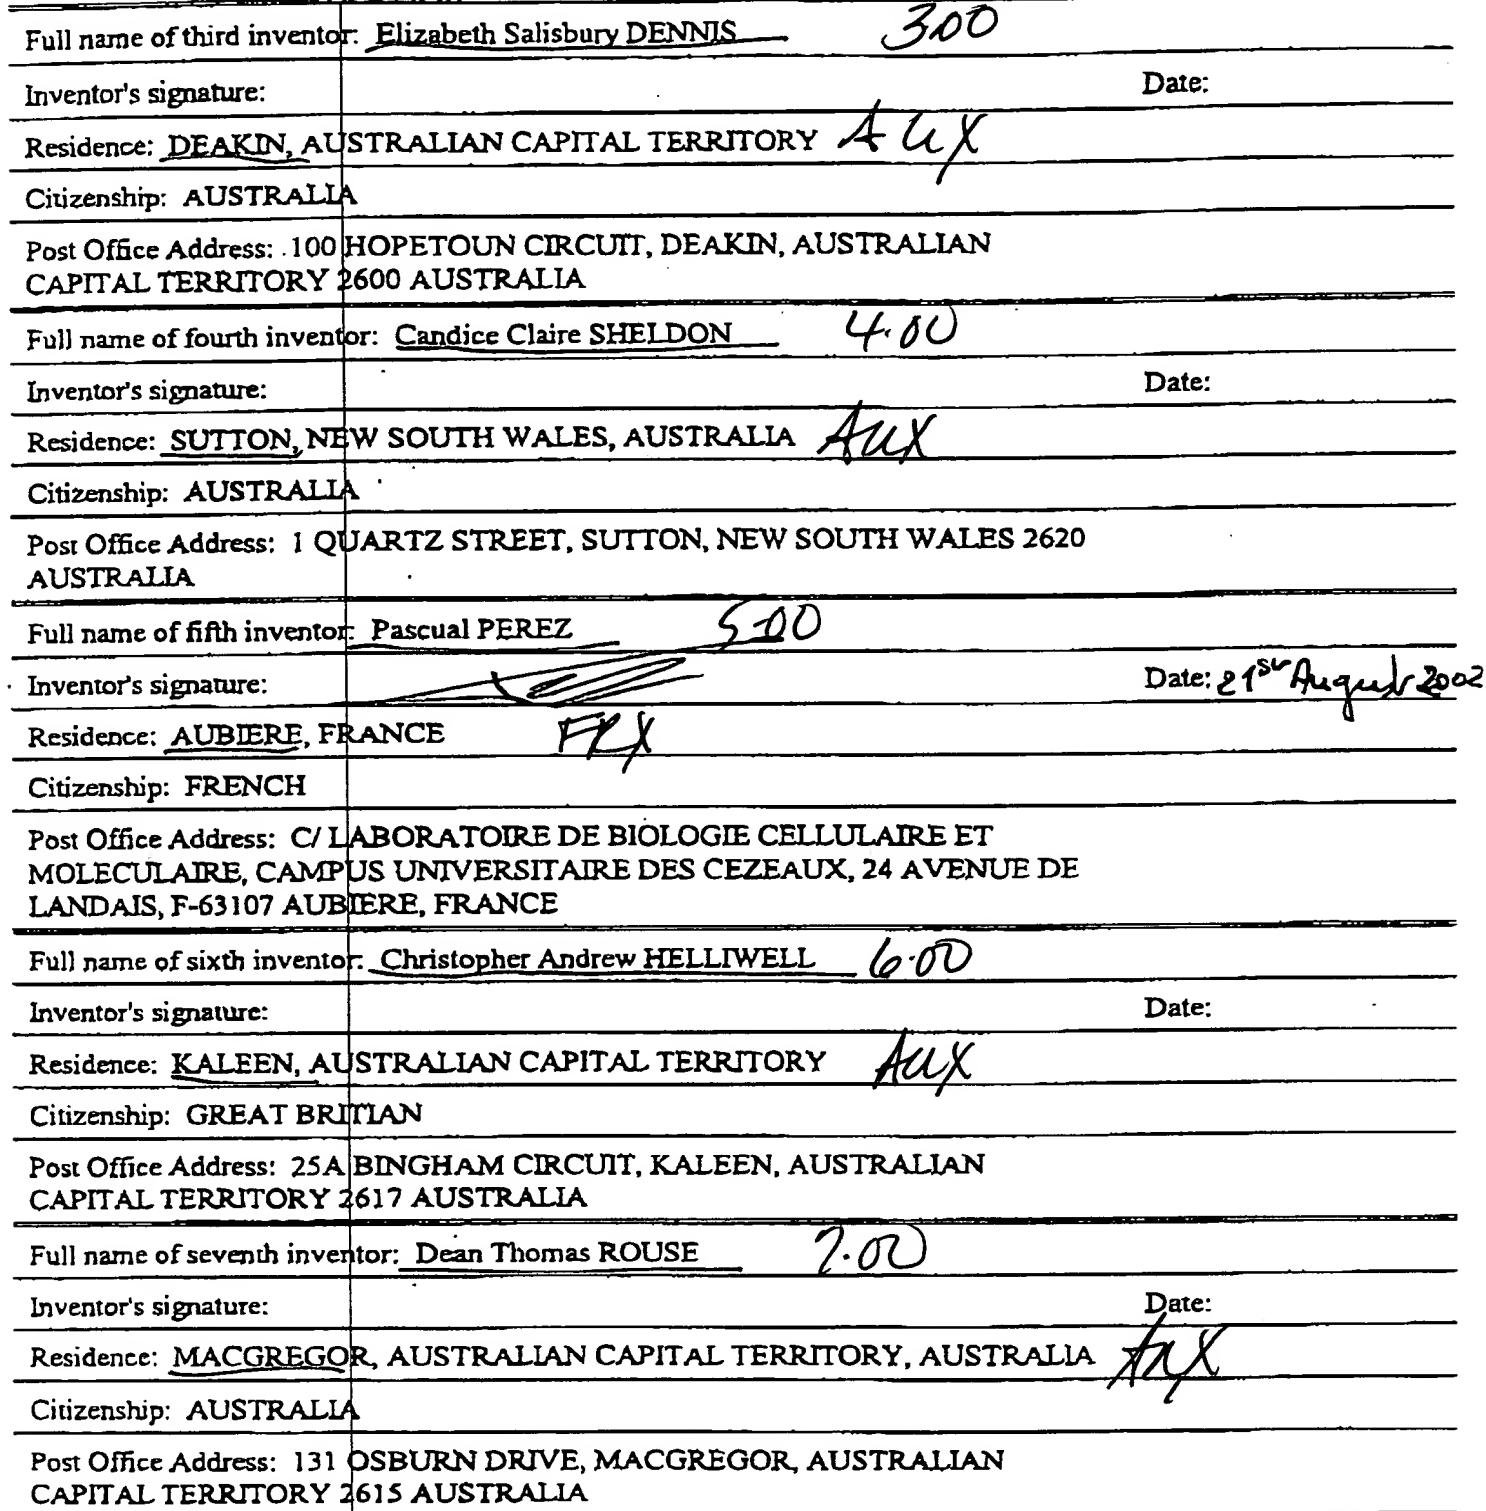 Full name of third inventor: Elizabeth Salisbury DENNIS 3.00
Inventor's signature: Date:
Residence: DEAKIN, AUSTRALIAN CAPITAL TERRITORY AUX
Citizenship: AUSTRALIA
Post Office Address: 100 HOPETOUN CIRCUIT, DEAKIN, AUSTRALIAN
CAPITAL TERRITORY 2600 AUSTRALIA
Full name of fourth inventor: Candice Claire SHELDON 4.00
Inventor's signature: Date:
Residence: SUTTON, NEW SOUTH WALES, AUSTRALIA AUX
Citizenship: AUSTRALIA
Post Office Address: 1 QUARTZ STREET, SUTTON, NEW SOUTH WALES 2620
AUSTRALIA
Full name of fifth inventor: Pascual PEREZ 5.00
Inventor's signature: Date: 21st August 2002
Residence: AUBIERE, FRANCE FRX
Citizenship: FRENCH
Post Office Address: C/ LABORATOIRE DE BIOLOGIE CELLULAIRE ET
MOLECULAIRE, CAMPUS UNIVERSITAIRE DES CEZEAUX, 24 AVENUE DE
LANDAIS, F-63107 AUBIERE, FRANCE
Full name of sixth inventor: Christopher Andrew HELLIWELL 6.00
Inventor's signature: Date:
Residence: KALEEN, AUSTRALIAN CAPITAL TERRITORY AUX
Citizenship: GREAT BRITIAN
Post Office Address: 25A BINGHAM CIRCUIT, KALEEN, AUSTRALIAN
CAPITAL TERRITORY 2617 AUSTRALIA
Full name of seventh inventor: Dean Thomas ROUSE 7.00
Inventor's signature: Date:
Residence: MACGREGOR, AUSTRALIAN CAPITAL TERRITORY, AUSTRALIA AUX
Citizenship: AUSTRALIA
Post Office Address: 131 OSBURN DRIVE, MACGREGOR, AUSTRALIAN
CAPITAL TERRITORY 2615 AUSTRALIA